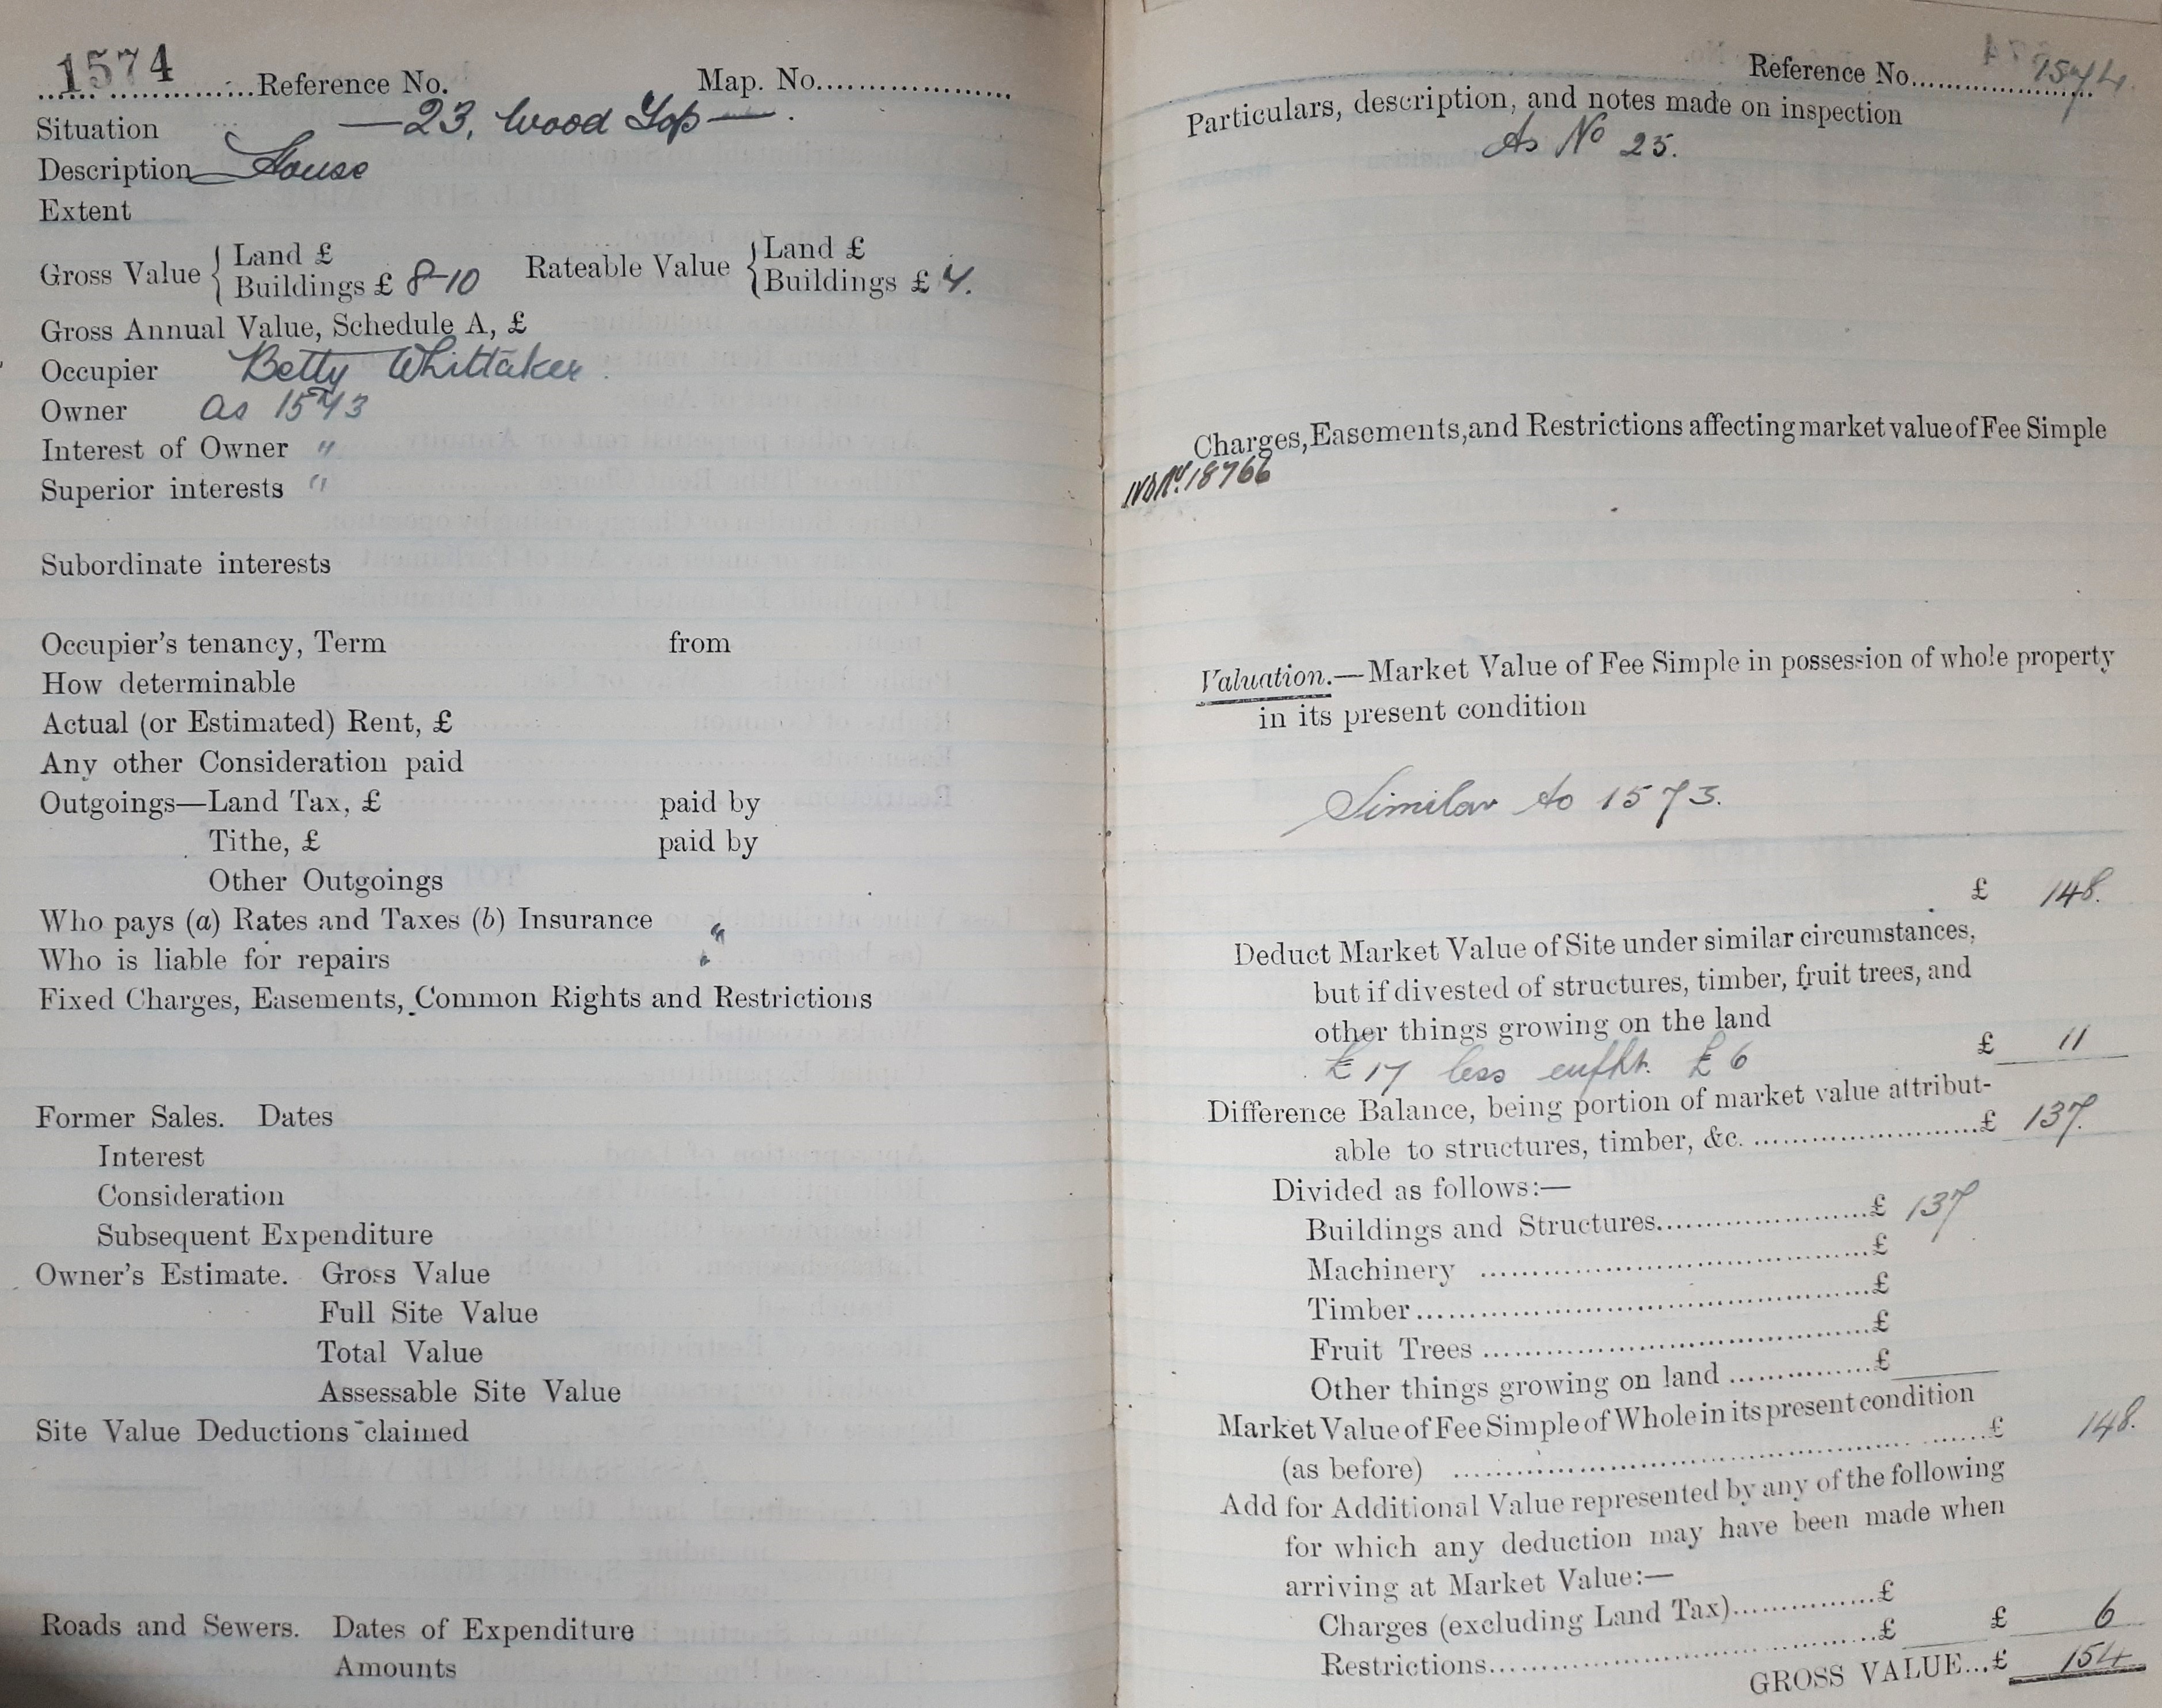 1574 Reference No. Map. No.
Situation —23, Wood Top—.
Description House
Extent
Gross Value { Land £ Rateable Value { Land £
Buildings £ 8-10 Buildings £ 4.
Gross Annual Value, Schedule A, £
Occupier Betty Whittaker.
Owner As 1573
Interest of Owner "
Superior interests "
Subordinate interests
Occupier's tenancy, Term from
How determinable
Actual (or Estimated) Rent, £
Any other Consideration paid
Outgoings—Land Tax, £ paid by
Tithe, £ paid by
Other Outgoings
Who pays (a) Rates and Taxes (b) Insurance "
Who is liable for repairs "
Fixed Charges, Easements, Common Rights and Restrictions
Former Sales. Dates
Interest
Consideration
Subsequent Expenditure
Owner's Estimate. Gross Value
Full Site Value
Total Value
Assessable Site Value
Site Value Deductions claimed
Roads and Sewers. Dates of Expenditure
Amounts
Reference No. 1574.
Particulars, description, and notes made on inspection
As No 25.
Charges, Easements, and Restrictions affecting market value of Fee Simple
18766
Valuation.—Market Value of Fee Simple in possession of whole property
in its present condition
Similar to 1573.
£ 148.
Deduct Market Value of Site under similar circumstances,
but if divested of structures, timber, fruit trees, and
other things growing on the land
£17 less £6 £ 11
Difference Balance, being portion of market value attribut-
able to structures, timber, &c. £ 137.
Divided as follows:—
Buildings and Structures £ 137
Machinery £
Timber £
Fruit Trees £
Other things growing on land £
Market Value of Fee Simple of Whole in its present condition
(as before) £ 148.
Add for Additional Value represented by any of the following
for which any deduction may have been made when
arriving at Market Value:—
Charges (excluding Land Tax) £
Restrictions £ £ 6
GROSS VALUE...£ 154